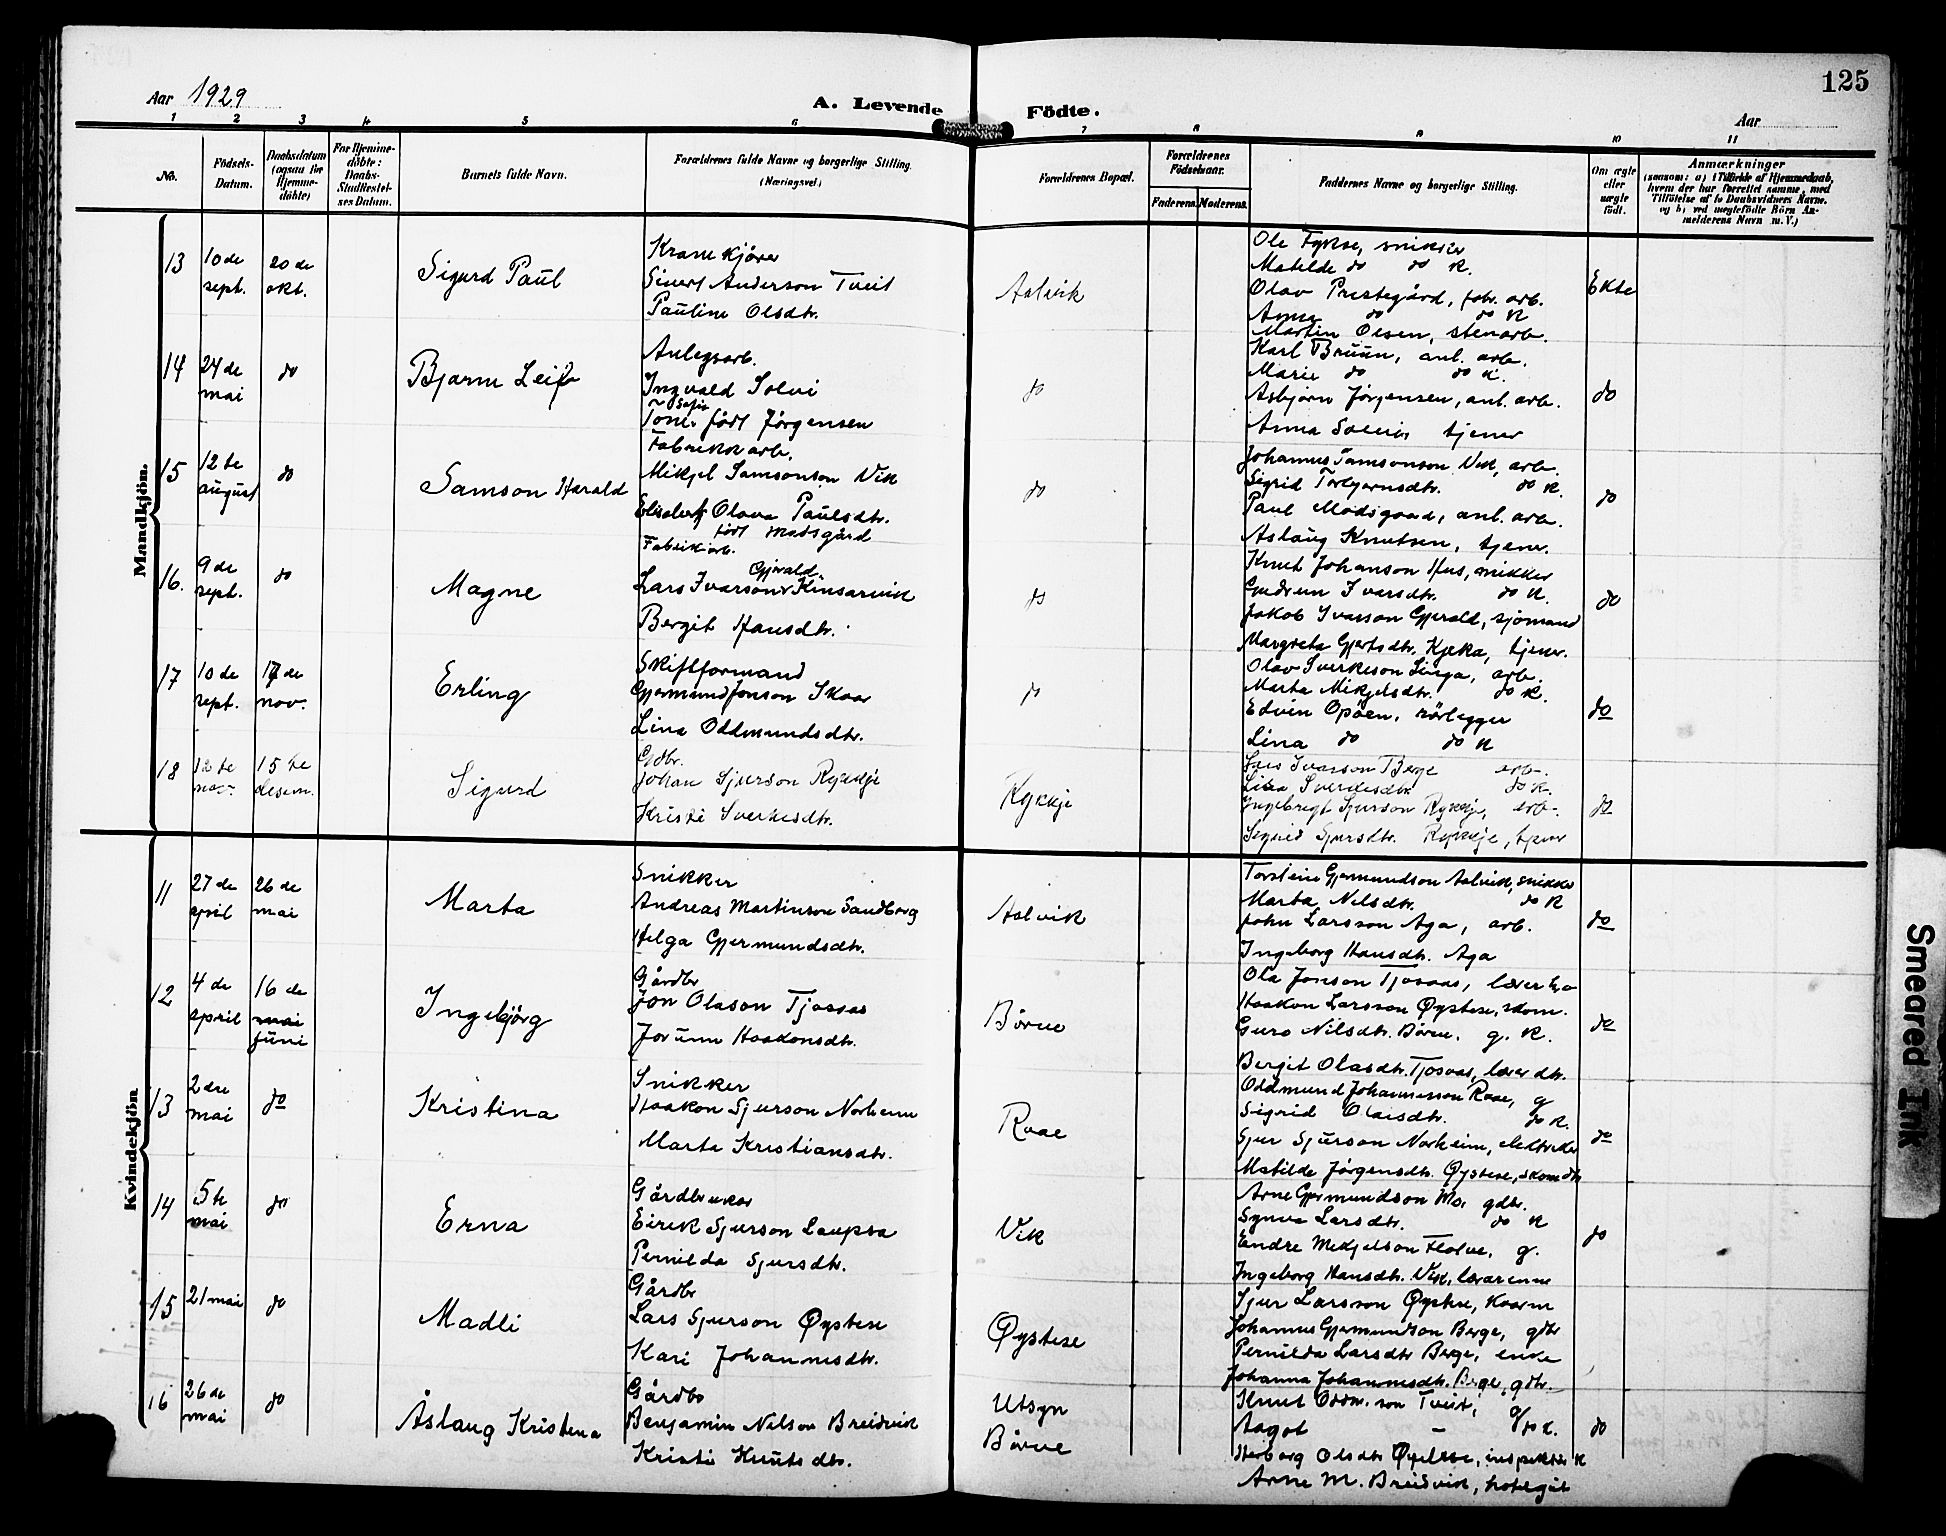 125
Aar 1929
A. Levende Födte.
Aar
1 2 3 4 5 6 7 8 9 10 11
No.
Födsels-Datum.
Daabsdatum (ogsaa for Hjemme-döbte)
For Hjemme-döbte: Daabs-Stadfæstel-ses Datum.
Barnets fulde Navn.
Forældrenes fulde Navne og borgerlige Stilling. (Næringsvei.)
Forældrenes Bopæl.
Forældrenes Födselsaar.
Faderens. Moderens.
Faddernes Navne og borgerlige Stilling.
Om ægte eller uægte född.
Anmærkninger
(saasom: a) i Tilfælde af Hjemmedaab,
hvem der har forrettet samme, med
Tilföielse af to Daabsvidners Navne.
og b) ved uægtefödte Börn An-
melderens Navn m. V.)
Mandkjön.
13
10de sept.
20de okt.
Sigurd Paul
Krankjörer
Sivert Anderson Tveit
Pauline Olsdtr.
Aalvik
Ole Fykse, snikker
Matilde do do K.
Olav Prestegård, fabr. arb.
Anna do do K
Martin Olsen, stenarb.
Ekte
14
24de mai
do
Bjarne Leif
Anlegsarb.
Ingvald Solvi
Sofie
Tone født Jørgensen
do
Karl Bruun, anl. arb.
Marie do do K.
Asbjørn Jørgensen, anl. arb.
Anna tjener
do
15
12te august
do
Samson Harald
Fabrikkarb.
Mikjel Samsonson Vik
Elisabeth Olava Paulsdtr.
født Modsgård
do
Johannes Samsonson Vik, arb.
Sigrid Torbjørnsdtr. do K.
Paul Modsgaard, anl. arb.
Aslaug Knutsen, tjener.
do
16.
9de sept.
do
Magne
Fabrikarb.
Gjerald
Lars Ivarson Kinsarvik
Bergit Hansdtr.
do
Knut Johanson Hus, snikker
Gudrun Ivarsdtr. do K.
Jakob Ivarson Gjerald, sjömand
Margreta Gjertsdtr. tjener.
do
17
10de sept.
17de nov.
Erling
Skiftformand
Gjermund Jonson Skaar
Lina Oddmundsdtr.
do
Olav Sverkeson arb.
Marta Mikjelsdtr. do K.
Edvin Opöen, rörlegger
Lina do do K
do
18
12te nov.
15te desem.
Sigurd
Gdbr.
Johan Sjurson Rykkje
Kristi Sverkesdtr.
Rykkje
Lars Ivarson Berge arb.
Sverkesdtr do K.
Ingebregt Sjurson Rykkje, arb.
Sigrid Sjursdtr. Rykkje, tjener
do
Kvindekjön
11
27de april
26de mai
Marta
Snikker
Andreas Martinson Sandberg
Helga Gjermundsdtr.
Aalvik
Torstein Gjermundson Aalvik, snikker
Marta Nilsdtr. do K
John Larsson Aga, arb.
Ingeborg Hansdtr. Aga
do
12
4de april
16de mai juni
Ingebjörg
Gårdbr
Jon Olason Tjosaas
Jorunn Haakonsdtr.
Börve
Ola Jonson Tjosaas,
Haakon Larsson Øystese, skom.
Guro Nilsdtr. Börve. g. K.
Bergit Olasdtr. Tjosaas, lærer dtr.
do
13
2dre mai
do
Kristina
Snikker
Haakon Sjurson Norheim
Marta Kristiansdtr.
Raae
Oddmund Johannesson Raae, g
Sigrid Olaisdtr. do K.
Sjur Sjurson Norheim,
Matilde Jørgensdtr. Øystese, skom dtr
do
14
5te mai
do
Erna
Gårdbruker
Eirik Sjurson Laupsa
Pernilda Sjursdtr.
Vik
Arne Gjermundson Mo, gdbr.
Synva Larsdtr. do K
Endre Mikjelson Flotve, g.
Ingeborg Hansdtr. Vik, lærarinne
do
15
21 mai
do
Madli
Gårdbr
Lars Sjurson Øystese
Kari Johannesdtr.
Øystese
Sjur Larsson Øystese, kaarm
Johannes Gjermundson Berge, gdbr
Pernilda Larsdtr Berge, enke
Johanna Johannesdtr. Berge, gdtr.
16
26de mai
do
Åslaug Kristena
Gårdbr
Benjamin Nilson Breidvik
Kristi Knutsdtr.
Utsyn
Börve
Knut Oddm.son Tveit, g
Aagot – do K.
Herborg Olsdtr Øystese,
Arne M. Breidvik,
do
Smeared Ink